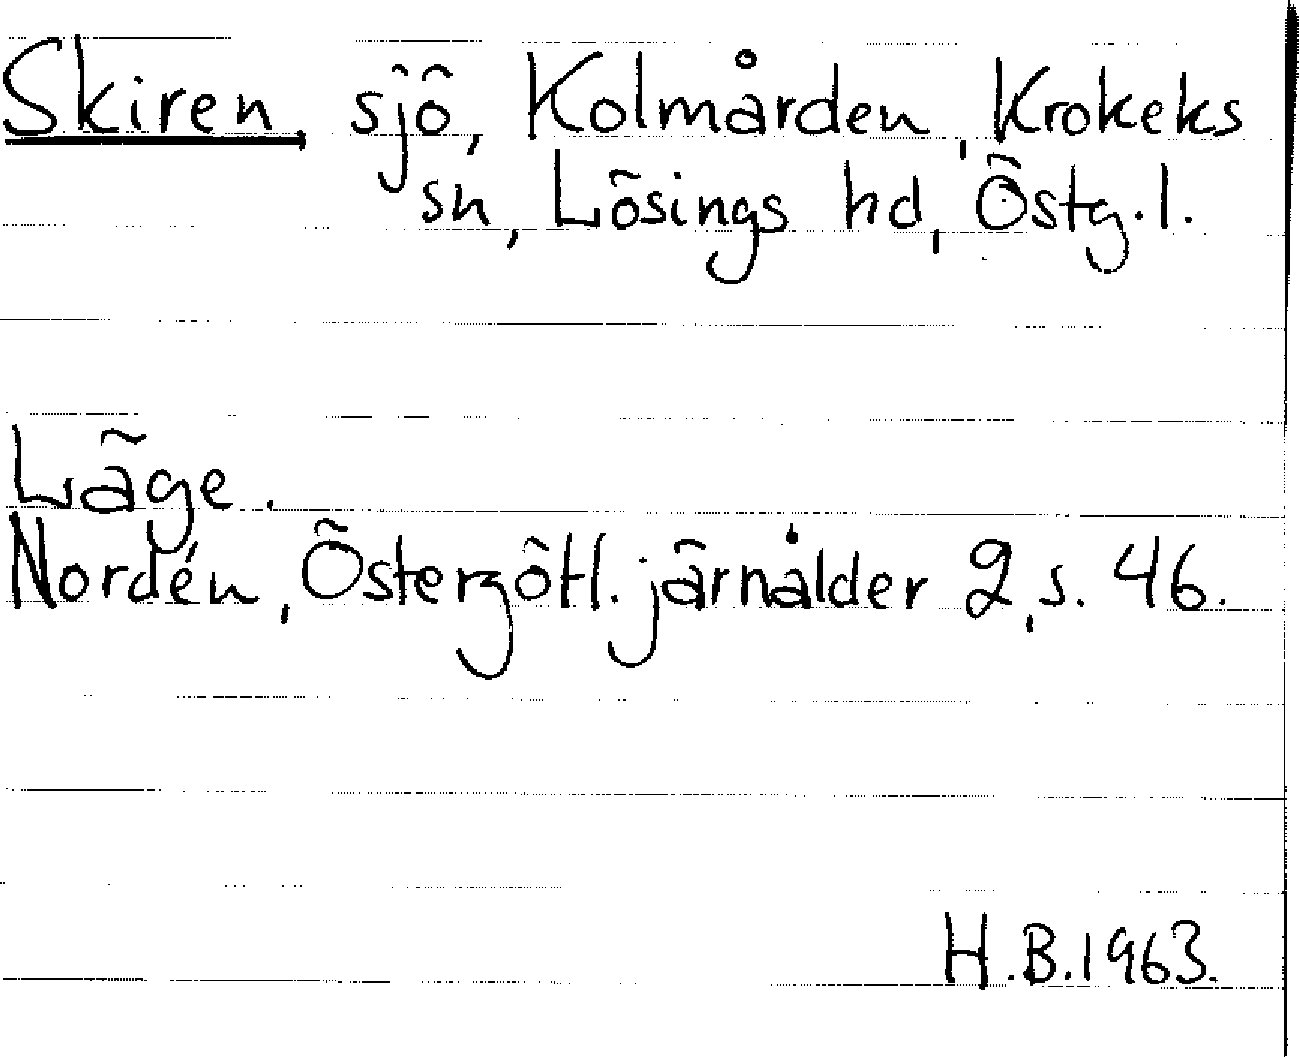 Skiren, sjö, Kolmården, Krokeks
sn, Lösings hd, Östg.l.
Läge.
Nordén, Östergötl. järnålder 2, s. 46.
H.B.1963.